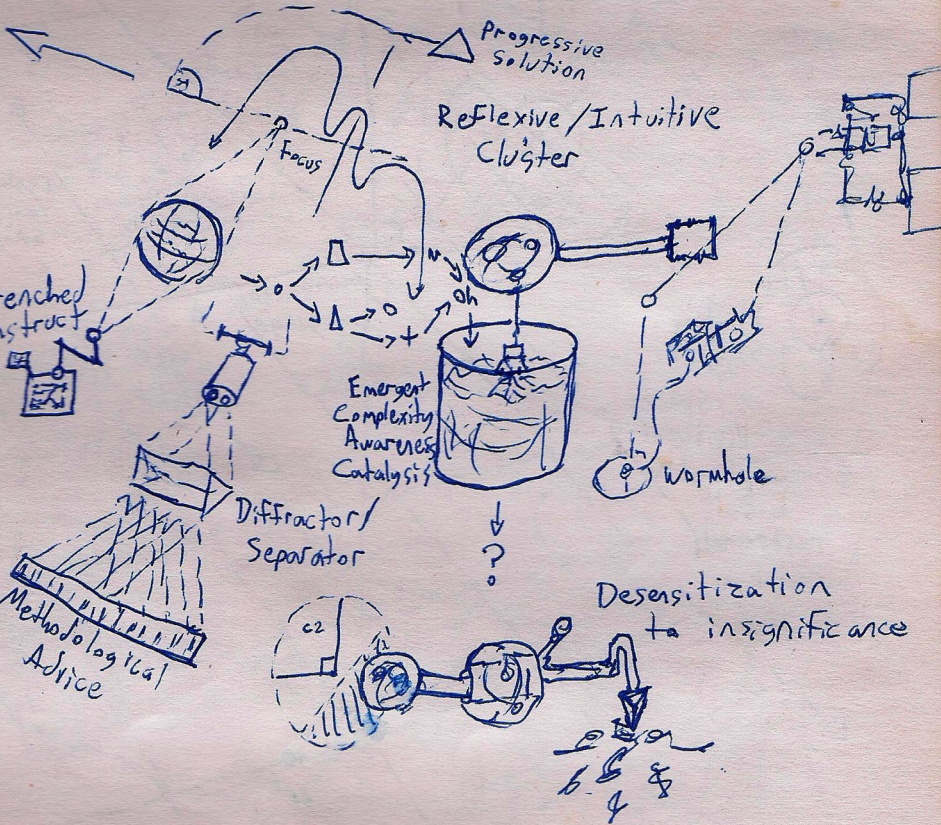 Progressive
Solution
Reflexive/Intuitive
Cluster
Focus
enched
struct
N
Oh
Emergent
Complexity
Awareness
Catalysis
wormhole
Diffractor/
Separator
?
Methodological
Advice
Desensitization
to insignificance